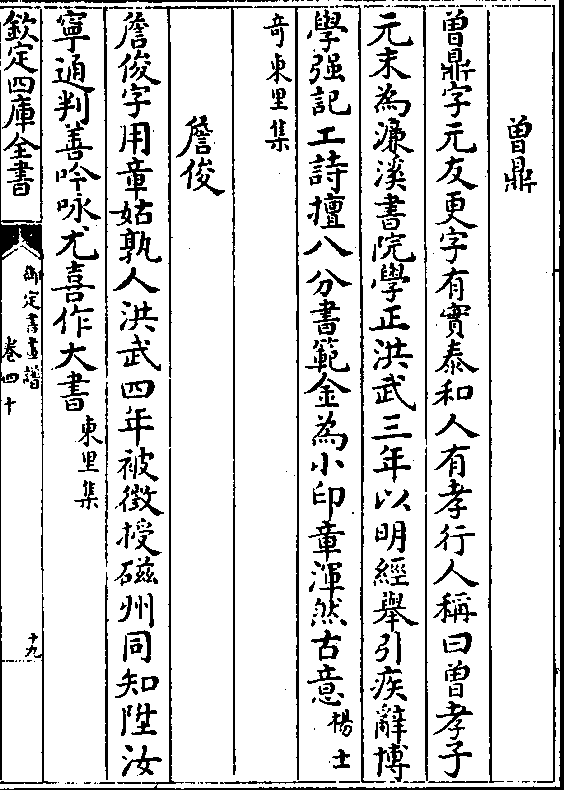 曽鼎
曽鼎字元友更字有實泰和人有孝行人稱曰曽孝子
元末為濂溪書院學正洪武三年以明經舉引疾辭博
學强記工詩擅八分書範金為小印章渾然古意楊士
奇東里集
詹俊
詹俊字用章姑孰人洪武四年被徴授磁州同知陞汝
寧通判善吟咏尤喜作大書東里集
欽定四庫全書
御定書畫譜
卷四十
十九